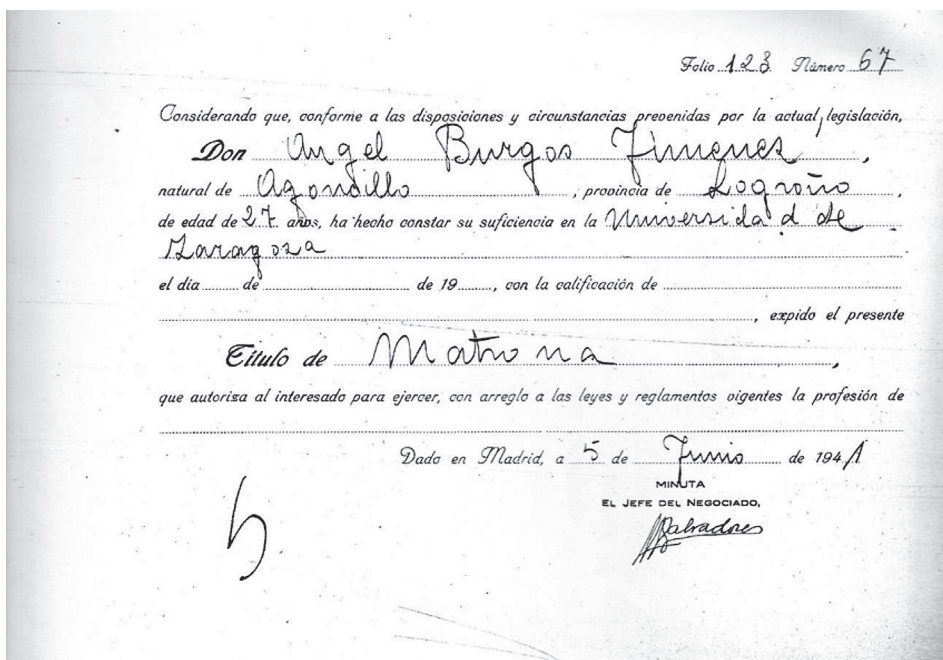 Folio 123 Número 67
Considerando que, conforme a las disposiciones y circunstancias prevenidas por la actual legislación,
Don Angel Burgos Jimenez,
natural de Agoncillo, provincia de Logroño,
de edad de 27 años, ha hecho constar su suficiencia en la Universidad de
Zaragoza
el día de de 19, con la calificación de
, expido el presente
Título de Matrona,
que autoriza al interesado para ejercer, con arreglo a las leyes y reglamentos vigentes la profesión de
Dado en Madrid, a 5 de Junio de 1941
MINUTA
EL JEFE DEL NEGOCIADO,
Salvadores